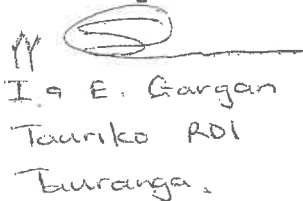 pp
I & E. Gargan
Tauriko RD1
Tauranga.